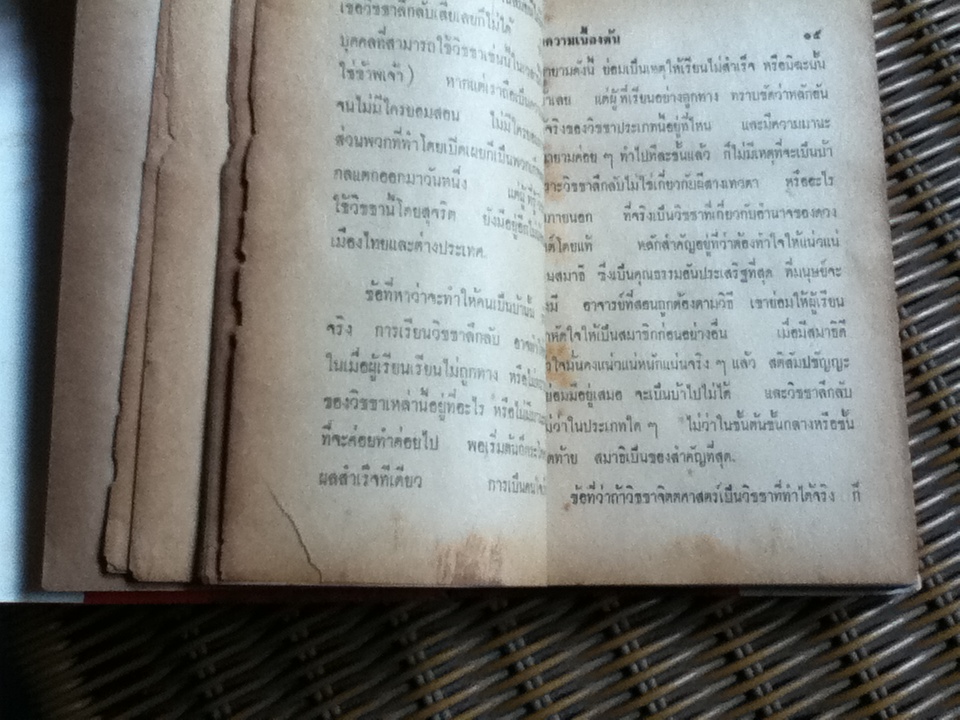 เชื่อวิชชาลึกลับเสียเลยก็ไม่ได้
บุคคลที่สามารถใช้วิชชาเช่นนี้ใน
ใช่ข้าพเจ้า) หากแต่เราถือเป็น
จนไม่มีใครยอมสอน ไม่มีใคร
ส่วนพวกที่ทำโดยเปิดเผยก็เป็นพวก
กลแตกออกมาวันหนึ่ง แต่ผู้ที่
ใช้วิชชานี้โดยสุจริต ยังมีอยู่อีก
เมืองไทยและต่างประเทศ.
ข้อที่หาว่าจะทำให้คนเป็นบ้านั้น
จริง การเรียนวิชชาลึกลับ
ในเมื่อผู้เรียนเรียนไม่ถูกทาง หรือ
ของวิชชาเหล่านี้อยู่ที่อะไร หรือ
ที่จะค่อยทำค่อยไป พอเริ่มต้นก็
ผลสำเร็จทีเดียว การเป็น
ความเบื้องต้น ๑๕
ดังนี้ ย่อมเป็นเหตุให้เรียนไม่สำเร็จ หรือมิฉะนั้น
เลย แต่ผู้ที่เรียนอย่างถูกทาง ทราบชัดว่าหลักอัน
จริงของวิชชาประเภทนี้อยู่ที่ไหน และมีความมานะ
ค่อย ๆ ทำไปทีละขั้นแล้ว ก็ไม่มีเหตุที่จะเป็นบ้า
วิชชาลึกลับไม่ใช่เกี่ยวกับผีสางเทวดา หรืออะไร
ภายนอก ที่จริงเป็นวิชชาที่เกี่ยวกับอำนาจของดวง
โดยแท้ หลักสำคัญอยู่ที่ว่าต้องทำใจให้แน่วแน่
สมาธิ ซึ่งเป็นคุณธรรมอันประเสริฐที่สุด ที่มนุษย์จะ
มี อาจารย์ที่สอนถูกต้องตามวิธี เขาย่อมให้ผู้เรียน
หัดใจให้เป็นสมาธิก่อนอย่างอื่น เมื่อมีสมาธิดี
ใจมั่นคงแน่วแน่หนักแน่นจริง ๆ แล้ว สติสัมปชัญญะ
ย่อมมีอยู่เสมอ จะเป็นบ้าไปไม่ได้ และวิชชาลึกลับ
ไม่ว่าในประเภทใด ๆ ไม่ว่าในขั้นต้นขั้นกลางหรือขั้น
สุดท้าย สมาธิเป็นของสำคัญที่สุด.
ข้อที่ว่าถ้าวิชชาจิตตศาสตร์เป็นวิชชาที่ทำได้จริง ก็